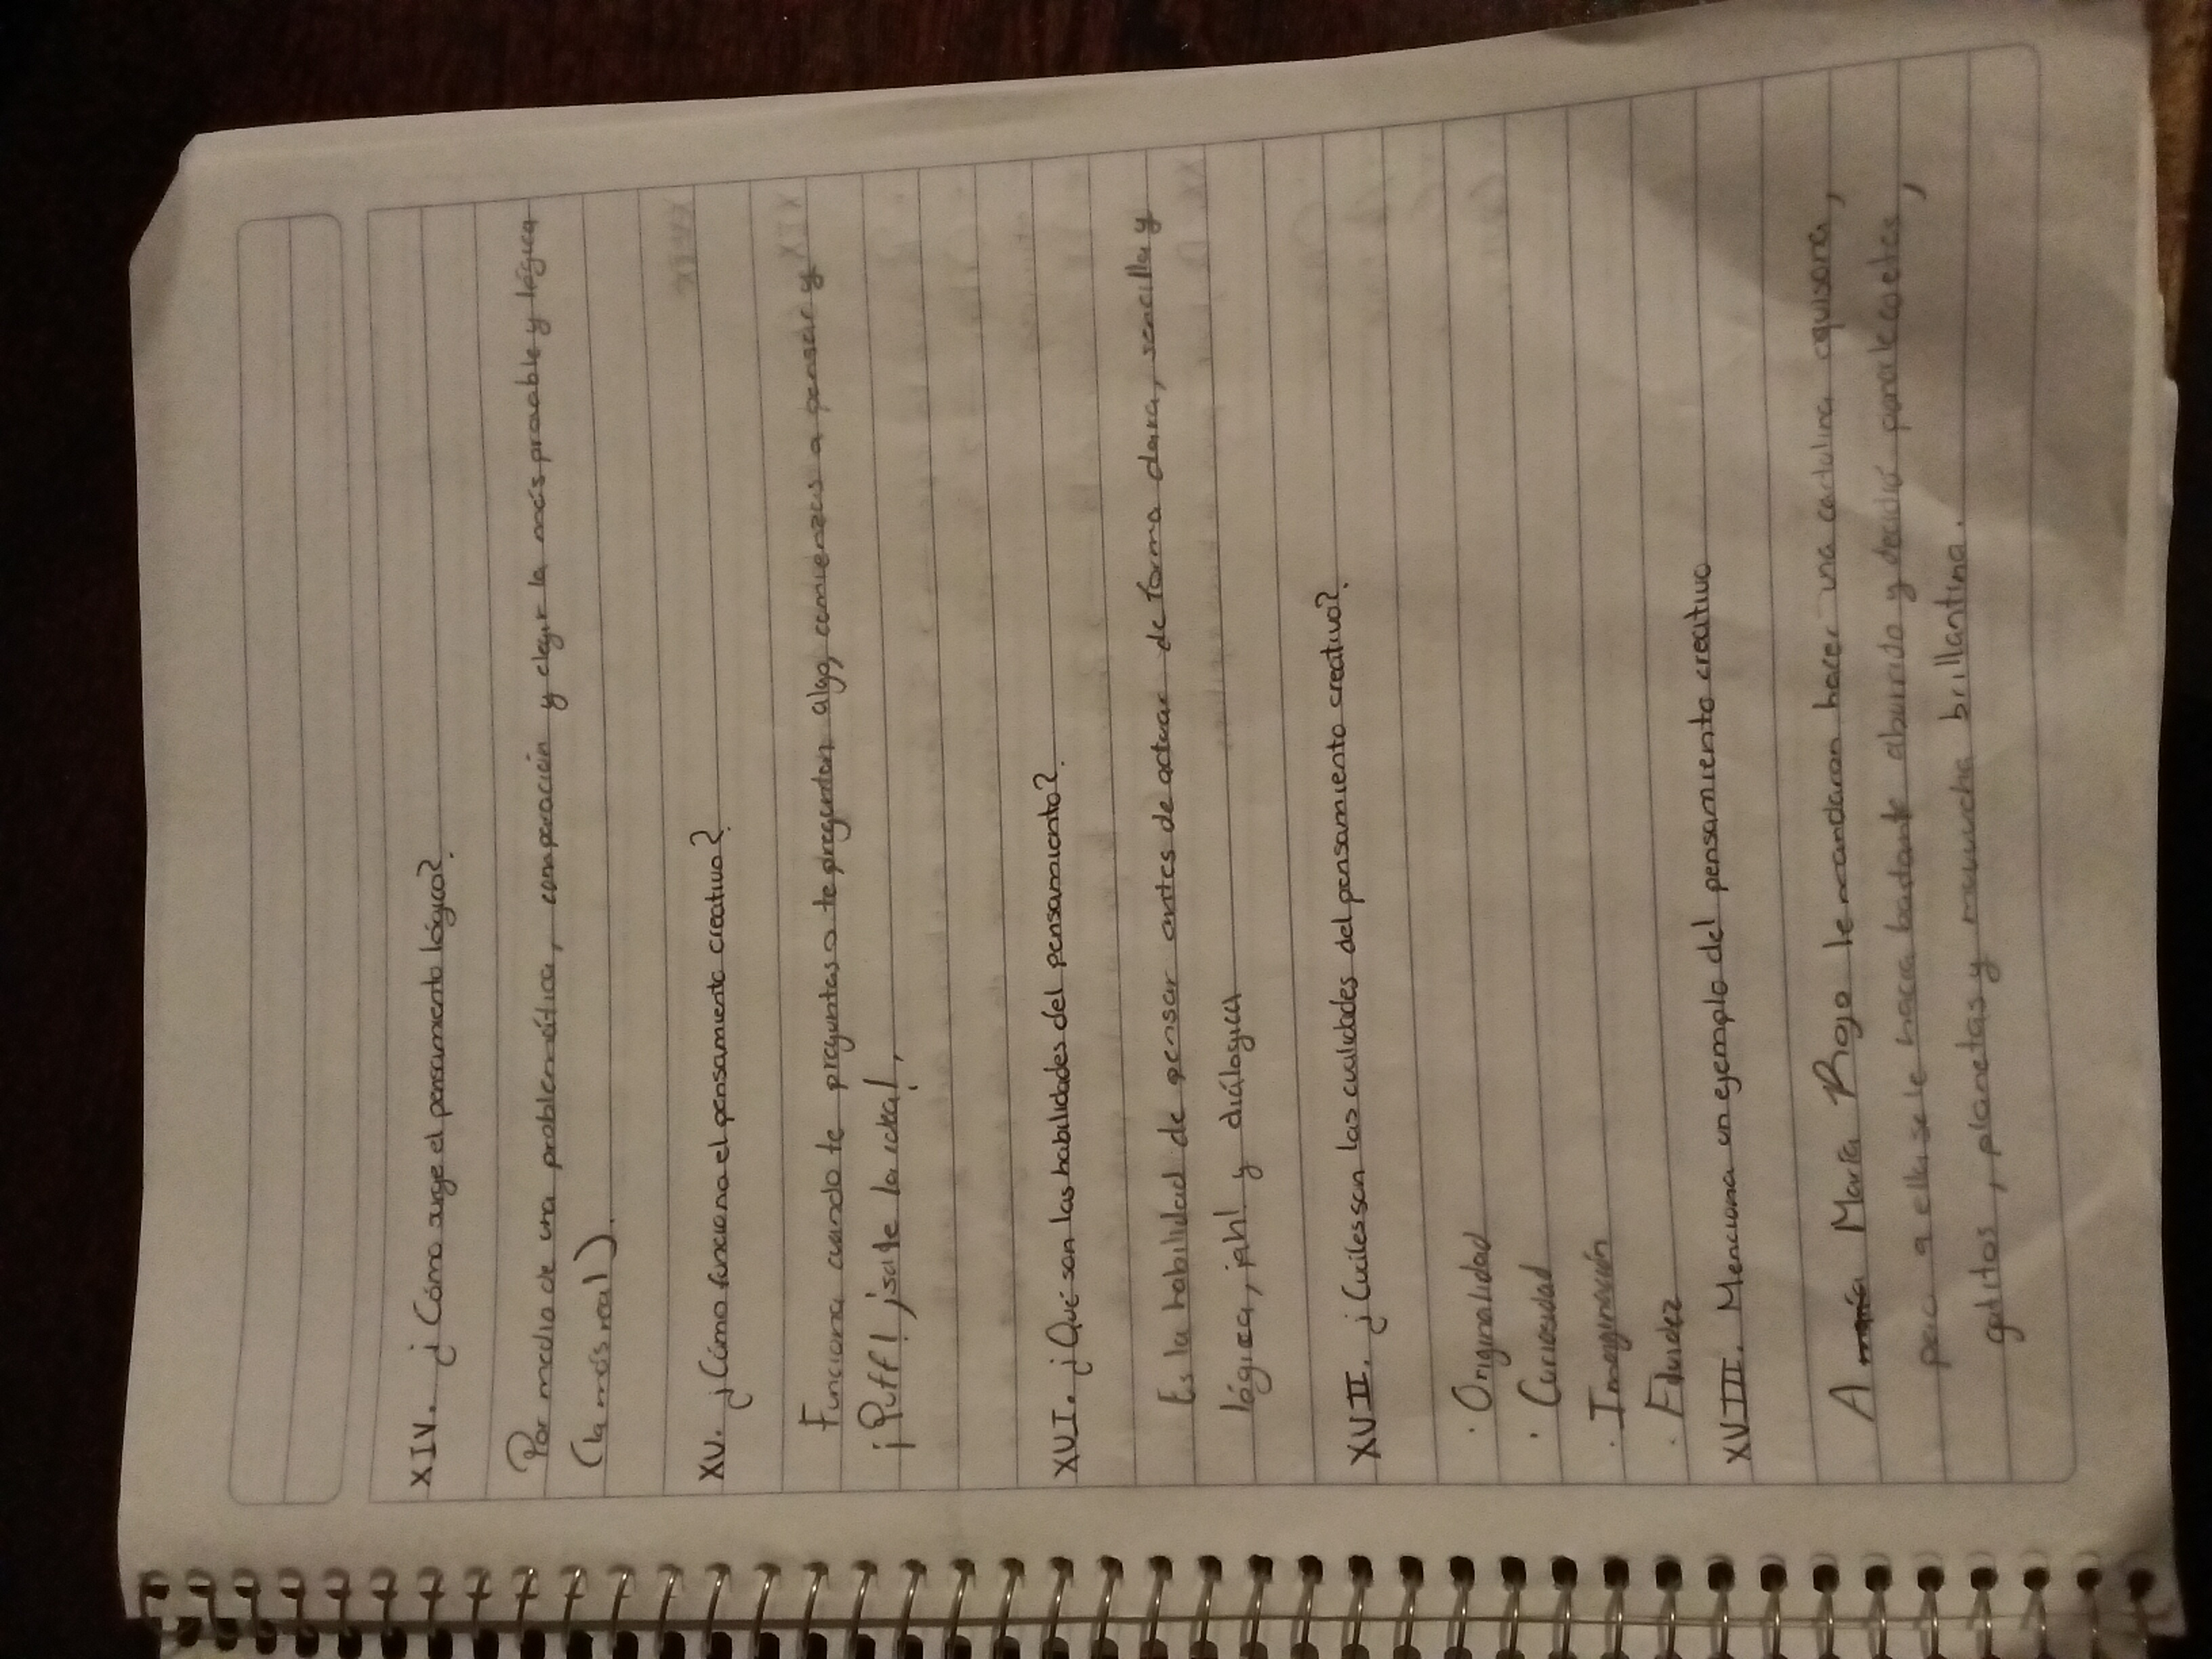 XIV. ¿Cómo surge el pensamiento lógico?
Por medio de una problemática, comparación y elegir la más probable y lógica
(la más real).
XV. ¿Cómo funciona el pensamiento creativo?
Funciona cuando te preguntas o te preguntan algo, comienzas a pensar y
¡Puff! ¡sale la idea!,
XVI. ¿Qué son las habilidades del pensamiento?
Es la habilidad de pensar antes de actuar de forma clara, sencilla y
lógica, ¡ah! y diálogica
XVII. ¿Cuáles son las cualidades del pensamiento creativo?
· Originalidad
· Curiosidad
· Imaginación
· Fluidez
XVIII. Menciona un ejemplo del pensamiento creativo
A María Rojo le mandaron hacer una cartulina expositora,
pero a ella se le hacía bastante aburrido y decidió ponle cohetes,
gatitos, planetas y muuucha brillantina.